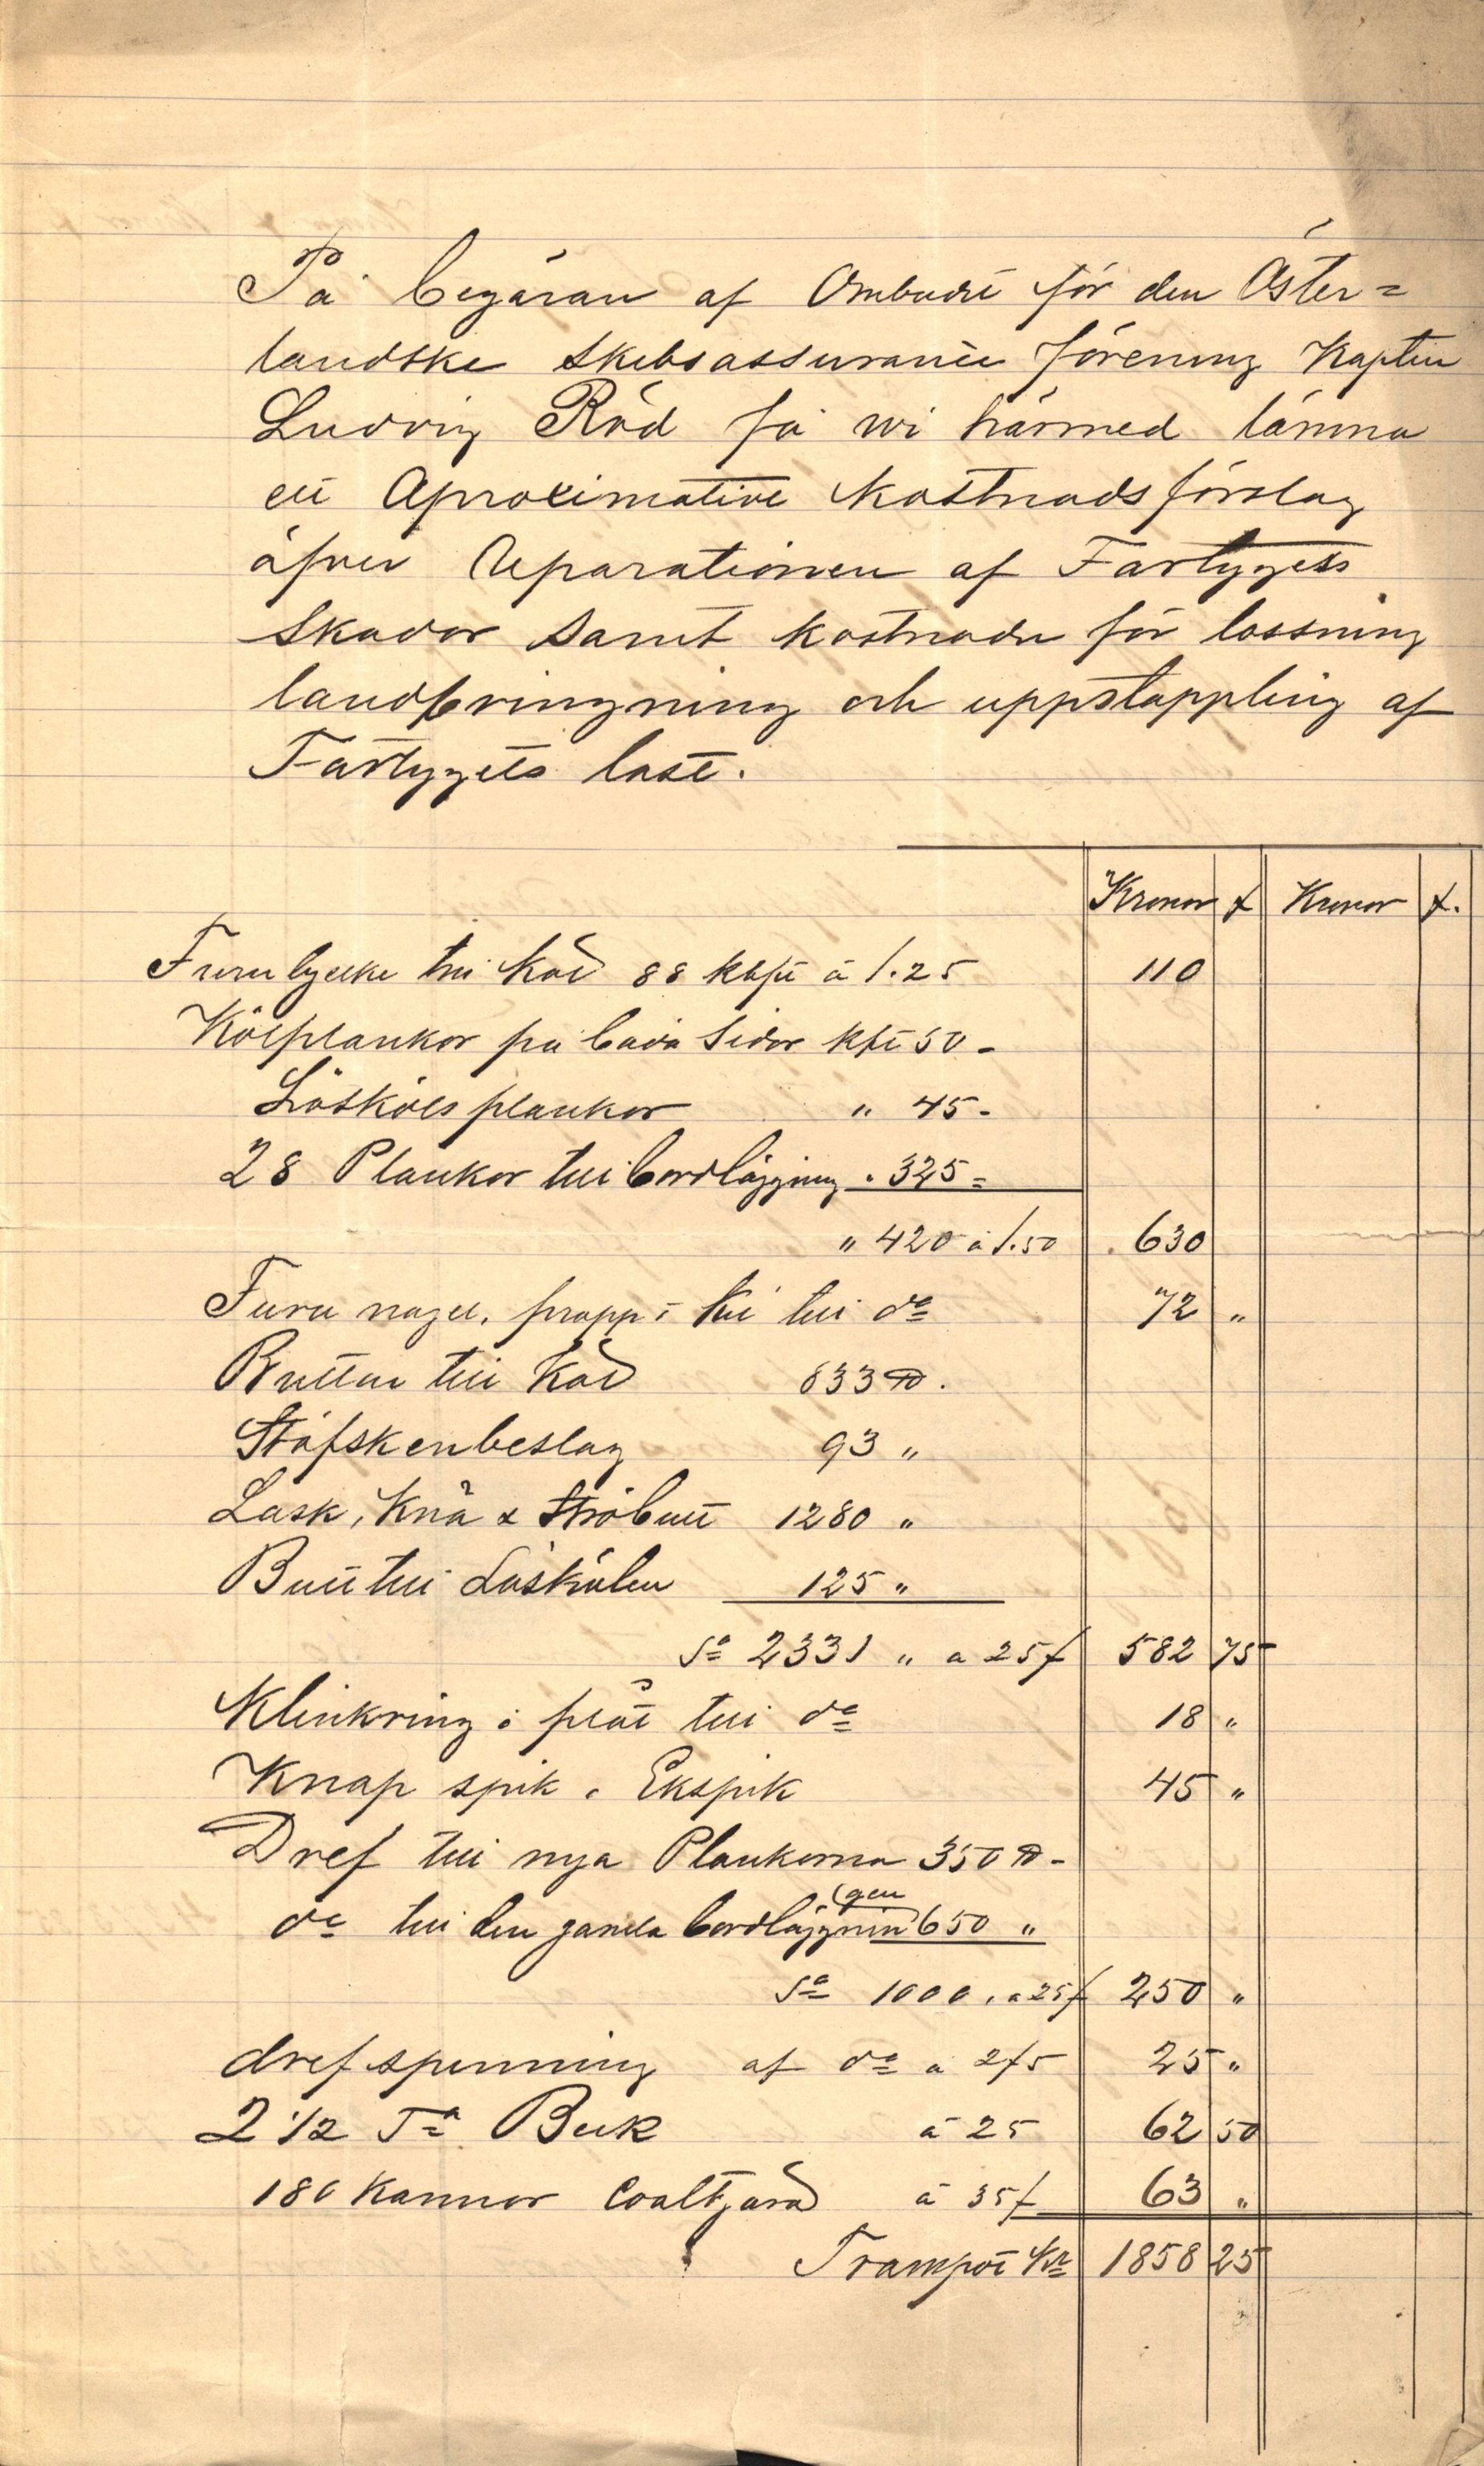 På begäran af Ombudet för den Öster=
landske Skibsassurance förening Kaptin
Ludvig Röd få wi härmed lämna
ett Aproximative Kostnadsförslag
öfver Reparationen af Fartygets
Skador samt kostnader för lossning
landbringning och uppstappling af
Fartygets last.
Kronor f Kronor f.
Furu lycke till Köl 88 kbft à 1.25 110
Kölplankor på båda Sidor kft 50 -
Löskölsplankor " 45 -
28 Plankor till bordläggning " 325 =
" 420 à 1.50 630
Furu nagel, propp i till do 72 "
till Köl 833 ℔.
Stäfskenbeslag 93 "
Lask, Knä & Ströbult 1280 "
Bult till Löskölen 125 "
Sa 2331 " a 25 f 582 75
Klinkring & plåt till do 18 "
Knap spik & Ekspik 45 "
Dref till nya Plankorna 350 ℔ -
do till den gamla bordläggnin(gen 650 "
Sa 1000 " a 25 f 250 "
drefspinning af do a 2f5 25 "
2 1/2 Ta Beck à 25 62 50
180 Kannor Coaltjära à 35 f 63 "
Transport Kr 1858 25